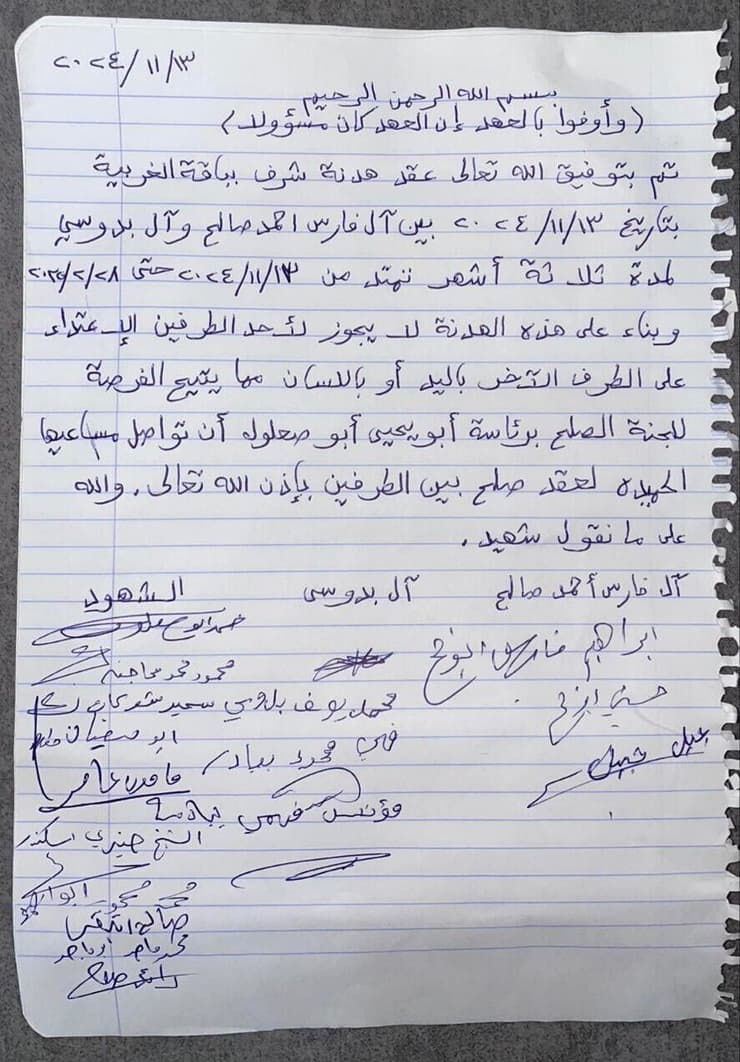 ٢٠٢٤/١١/١٣
بسم الله الرحمن الرحيم
(وأوفوا بالعهد إن العهد كان مسؤولا)
تم بتوفيق الله تعالى عقد هدنة شرف بباقة الغربية
بتاريخ ٢٠٢٤/١١/١٣ بين آل فارس احمد صالح وآل بدوسي
لمدة ثلاثة أشهر تمتد من ٢٠٢٤/١١/١٣ حتى
وبناء على هذه الهدنة لا يجوز لأحد الطرفين الإعتداء
على الطرف الآخر باليد أو باللسان مما يتيح الفرصة
للجنة الصلح برئاسة أبو يحيى أبو صعلوك أن تواصل مساعيها
الحميده لعقد صلح بين الطرفين بإذن الله تعالى. والله
على ما نقول شهيد.
آل فارس أحمد صالح آل بدوسي الشهود
ابراهيم فارس
محمود محمد
محمد يوسف بدوسي سمير
فهمي محمود
مؤنس فهمي
الشيخ خيري اسكندر
محمد محمود
صالح
محمد
رائد صلاح